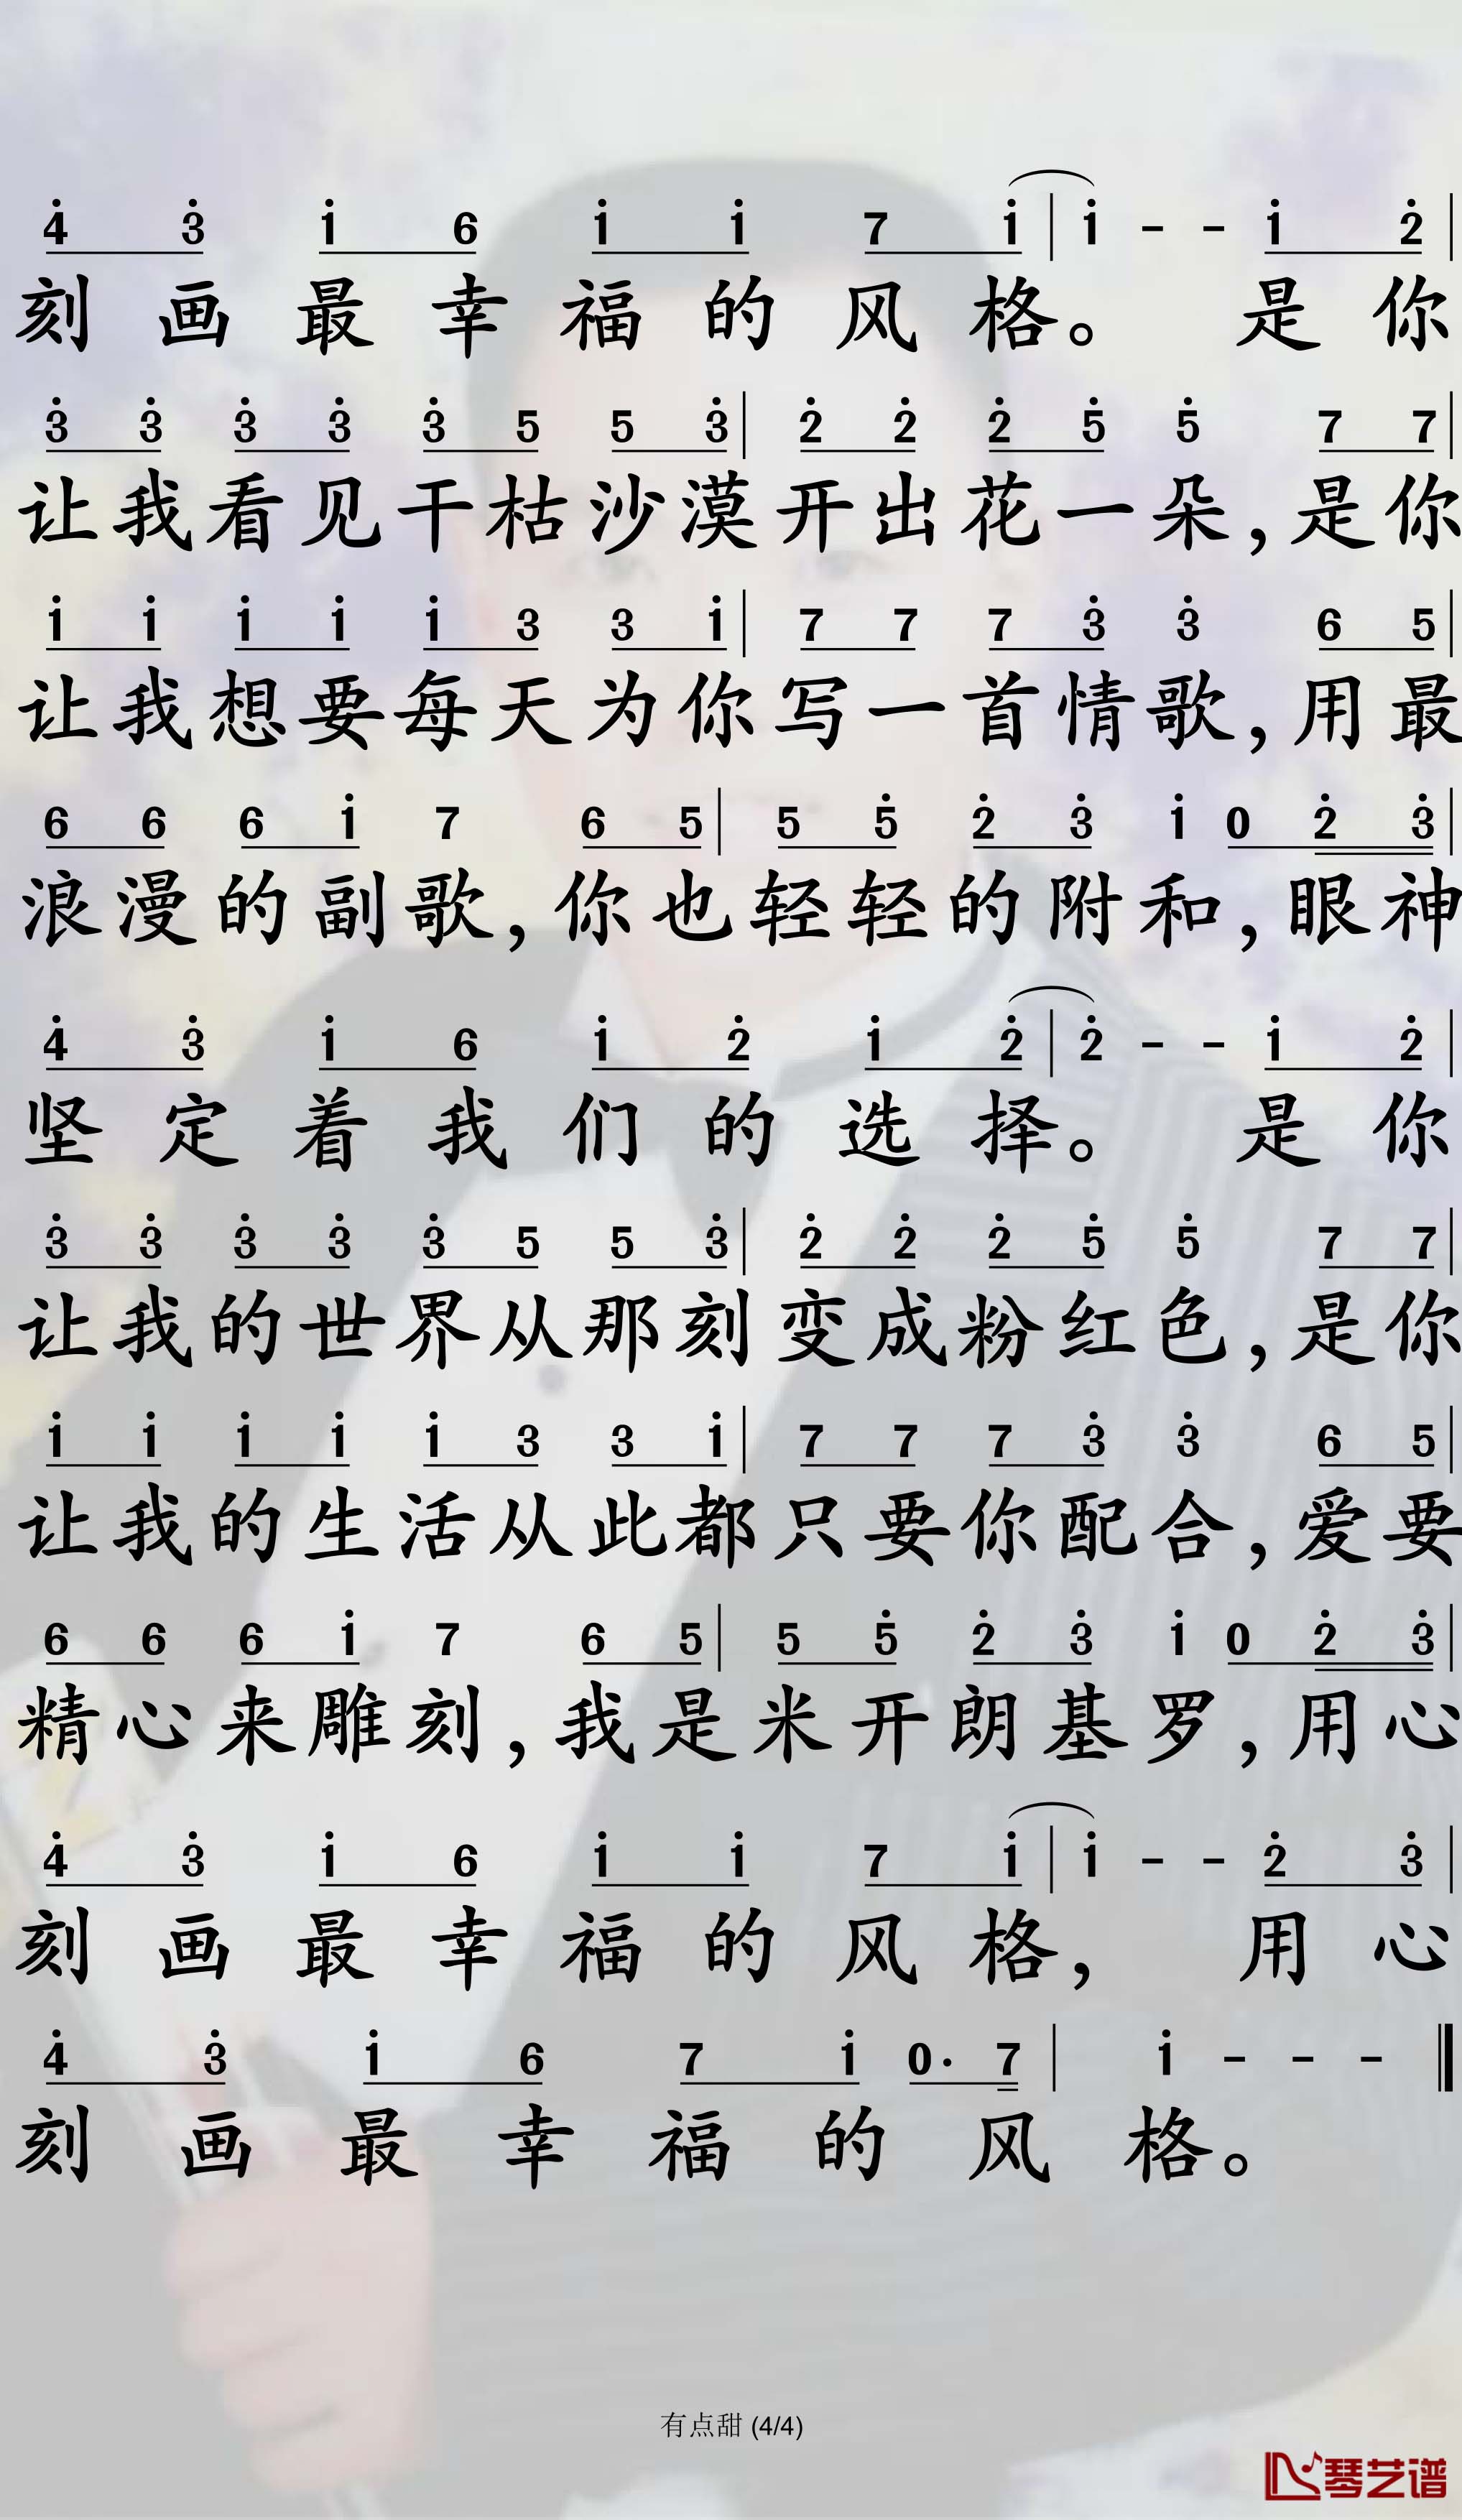 4̇ 3̇ 1̇ 6 1̇ 1̇ 7 1̇ | 1̇ - - 1̇ 2̇ |
刻画最幸福的风格。是你
3̇ 3̇ 3̇ 3̇ 3̇ 5 5 3̇ | 2̇ 2̇ 2̇ 5̇ 5̇ 7 7 |
让我看见干枯沙漠开出花一朵,是你
1̇ 1̇ 1̇ 1̇ 1̇ 3 3 1̇ | 7 7 7 3̇ 3̇ 6 5 |
让我想要每天为你写一首情歌,用最
6 6 6 1̇ 7 6 5 | 5 5̇ 2̇ 3̇ 1̇ 0 2̇ 3̇ |
浪漫的副歌,你也轻轻的附和,眼神
4̇ 3̇ 1̇ 6 1̇ 2̇ 1̇ 2̇ | 2̇ - - 1̇ 2̇ |
坚定着我们的选择。是你
3̇ 3̇ 3̇ 3̇ 3̇ 5 5 3̇ | 2̇ 2̇ 2̇ 5̇ 5̇ 7 7 |
让我的世界从那刻变成粉红色,是你
1̇ 1̇ 1̇ 1̇ 1̇ 3 3 1̇ | 7 7 7 3̇ 3̇ 6 5 |
让我的生活从此都只要你配合,爱要
6 6 6 1̇ 7 6 5 | 5 5̇ 2̇ 3̇ 1̇ 0 2̇ 3̇ |
精心来雕刻,我是米开朗基罗,用心
4̇ 3̇ 1̇ 6 1̇ 1̇ 7 1̇ | 1̇ - - 2̇ 3̇ |
刻画最幸福的风格,用心
4̇ 3̇ 1̇ 6 7 1̇ 0· 7 | 1̇ - - - ‖
刻画最幸福的风格。
有点甜 (4/4)
琴艺谱